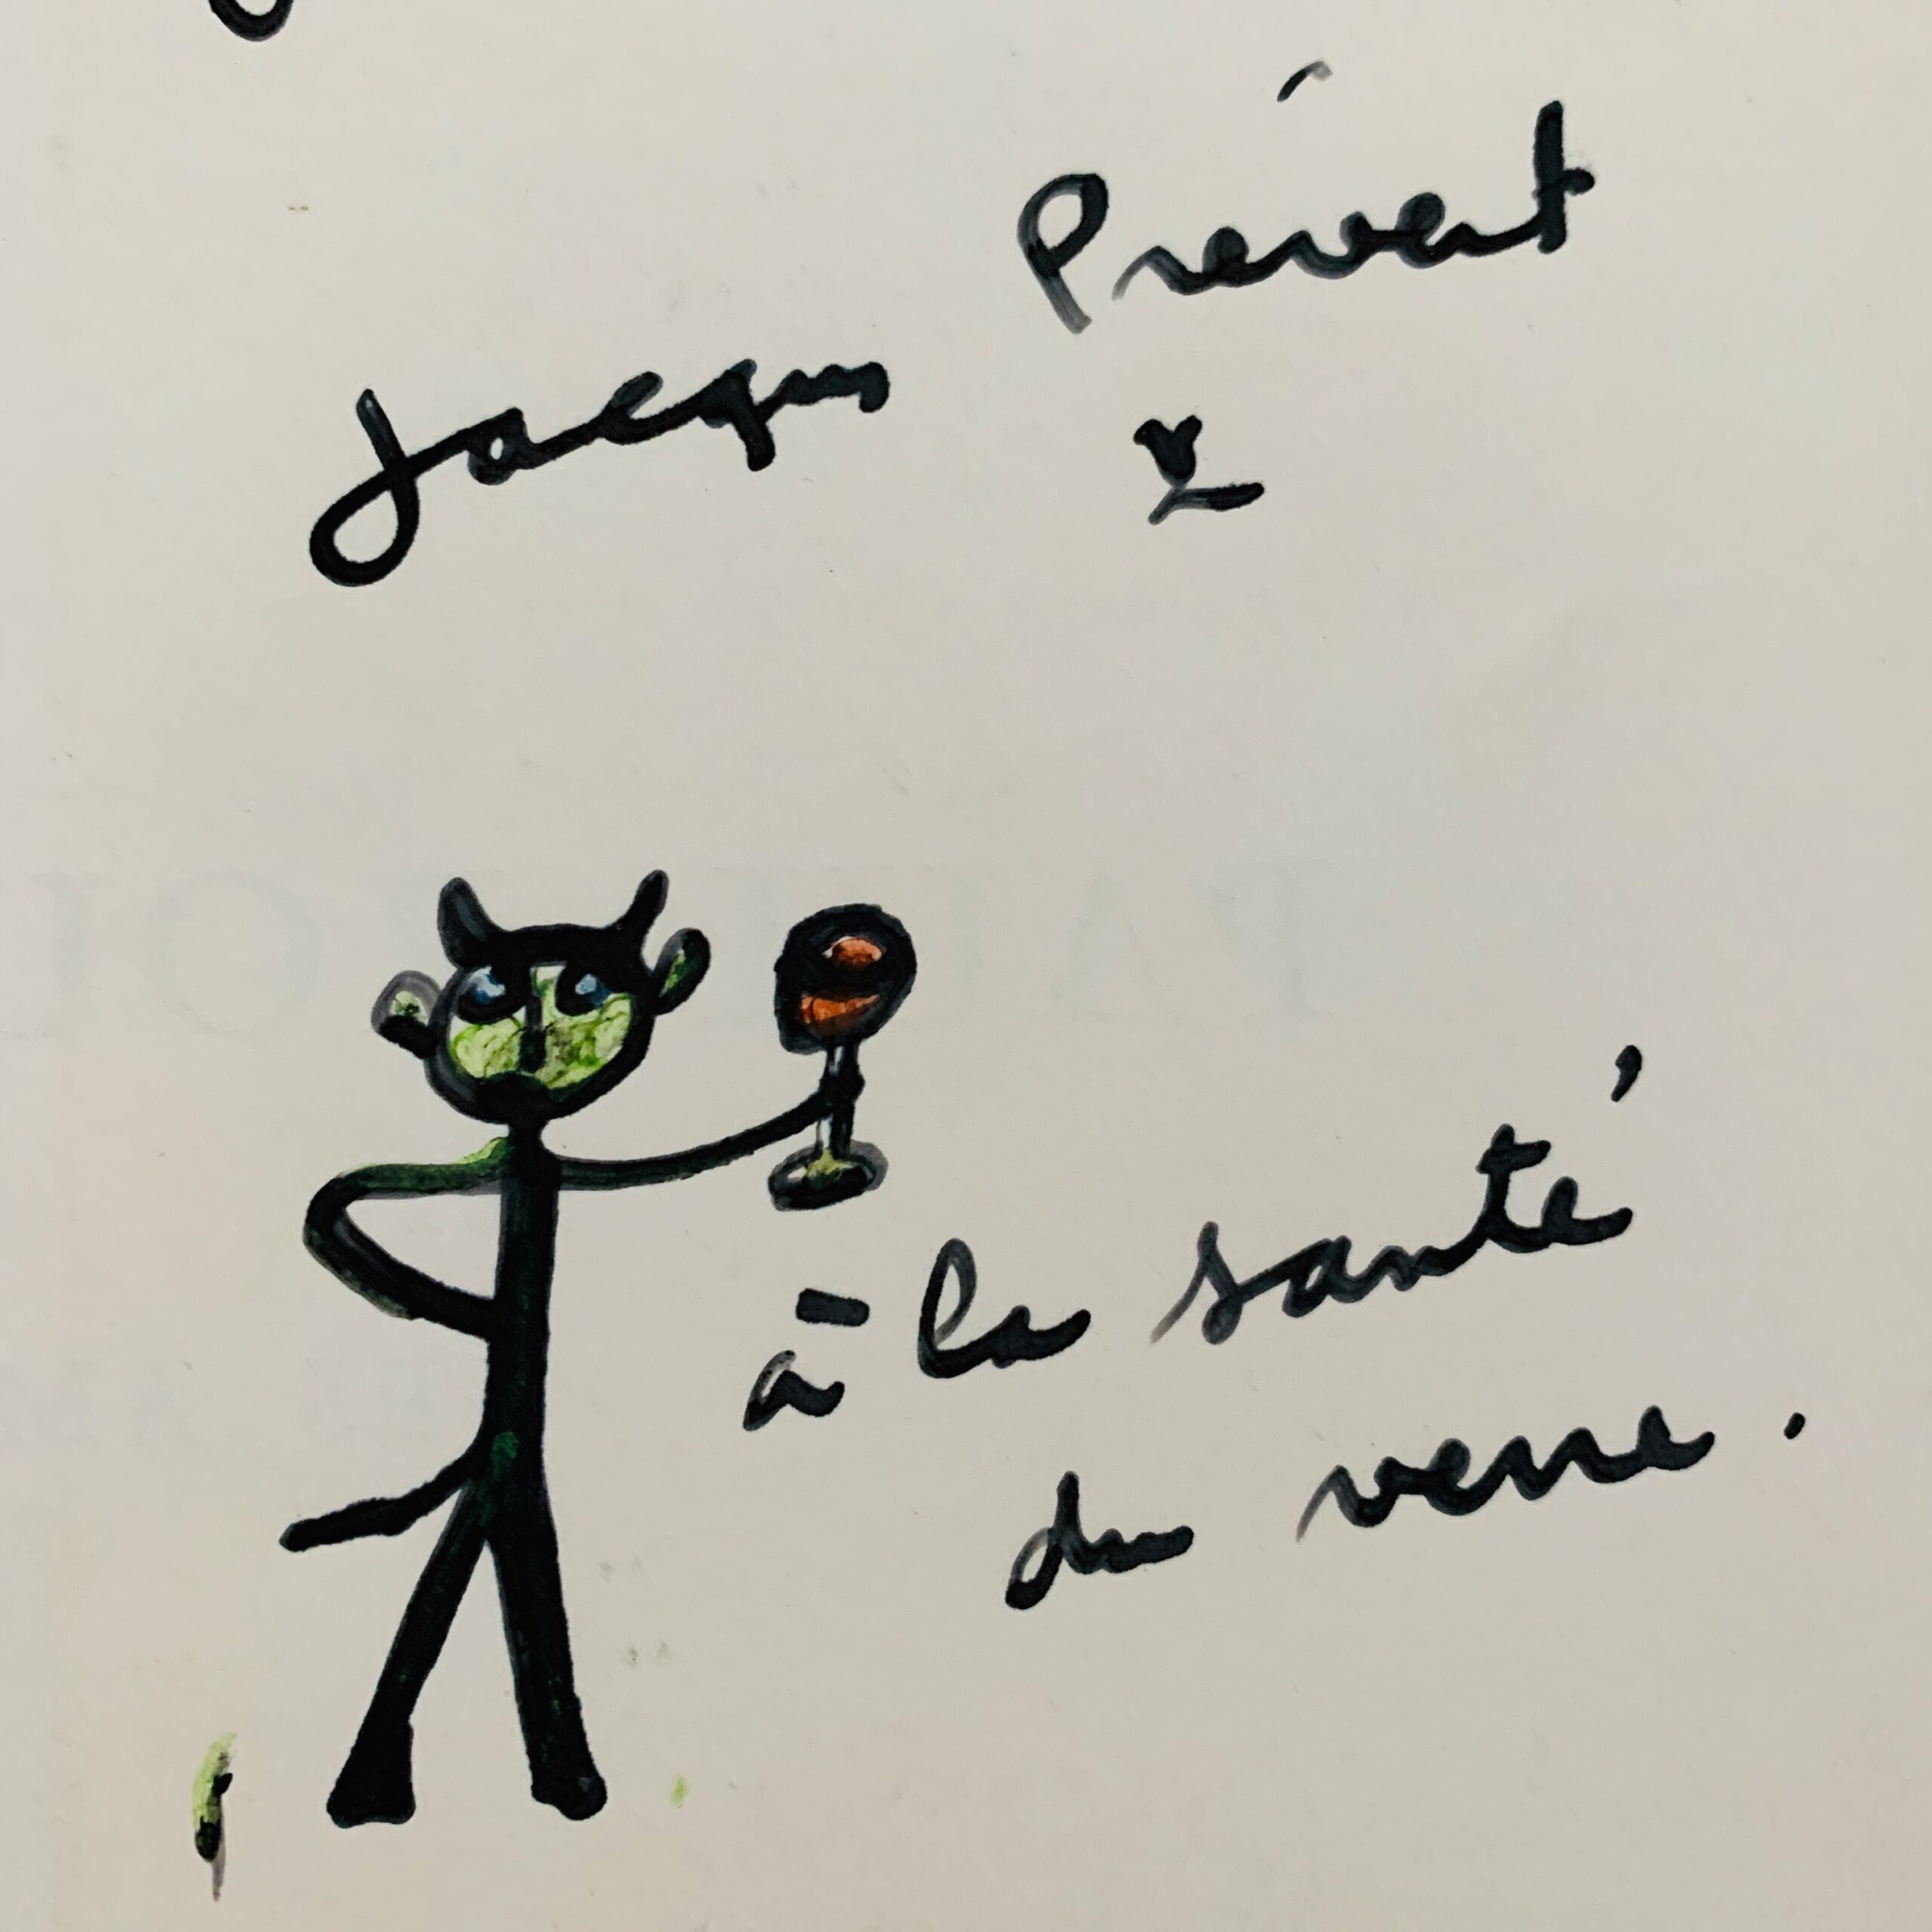 Jacques Prévert
à la santé
du verre.